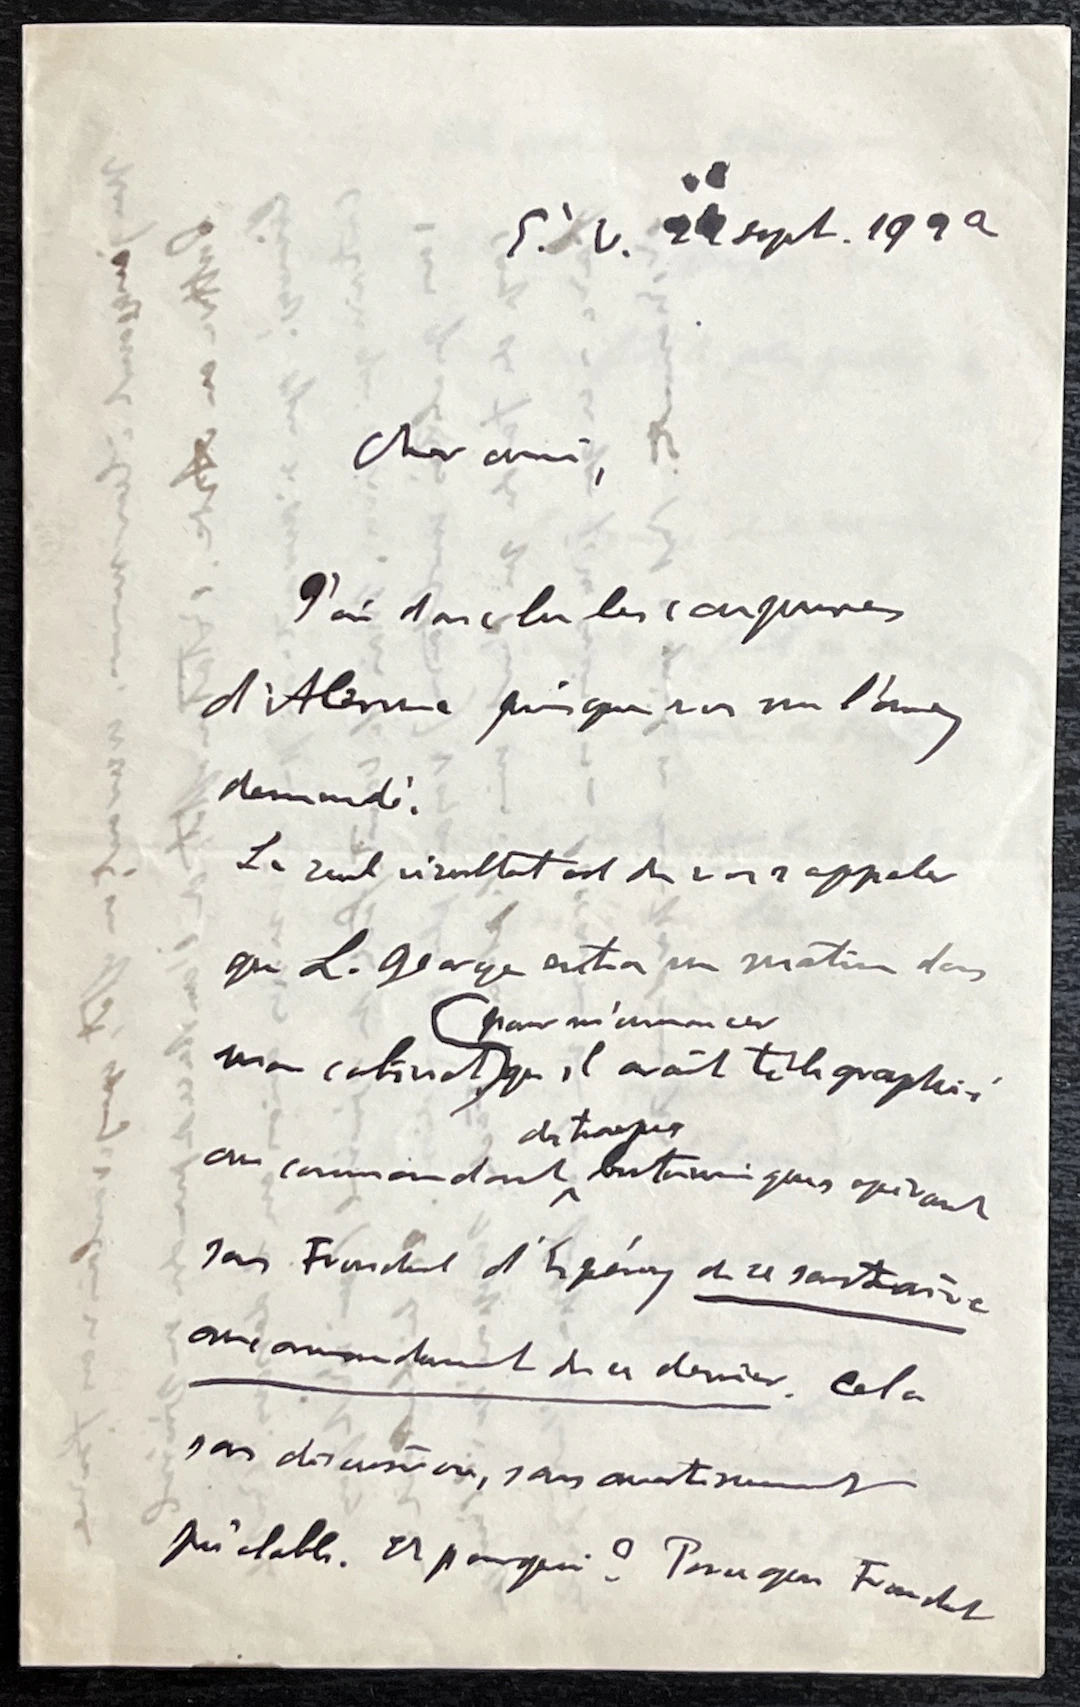 S. V. 22 sept. 1929
Cher ami,
J'ai donc lu les coupures
d'Alerme puisque vous me l'avez
demandé.
Le seul résultat est de vous rappeler
que L. George entra un matin dans
pour m'annoncer
mon cabinet, qu'il avait télégraphié
de troupes
au commandant britanniques opérant
sous Franchet d'Espérey de se soustraire
au commandement de ce dernier. Cela
sans discussion, sans avertissement
préalable. Et pourquoi ? Parce que Franchet